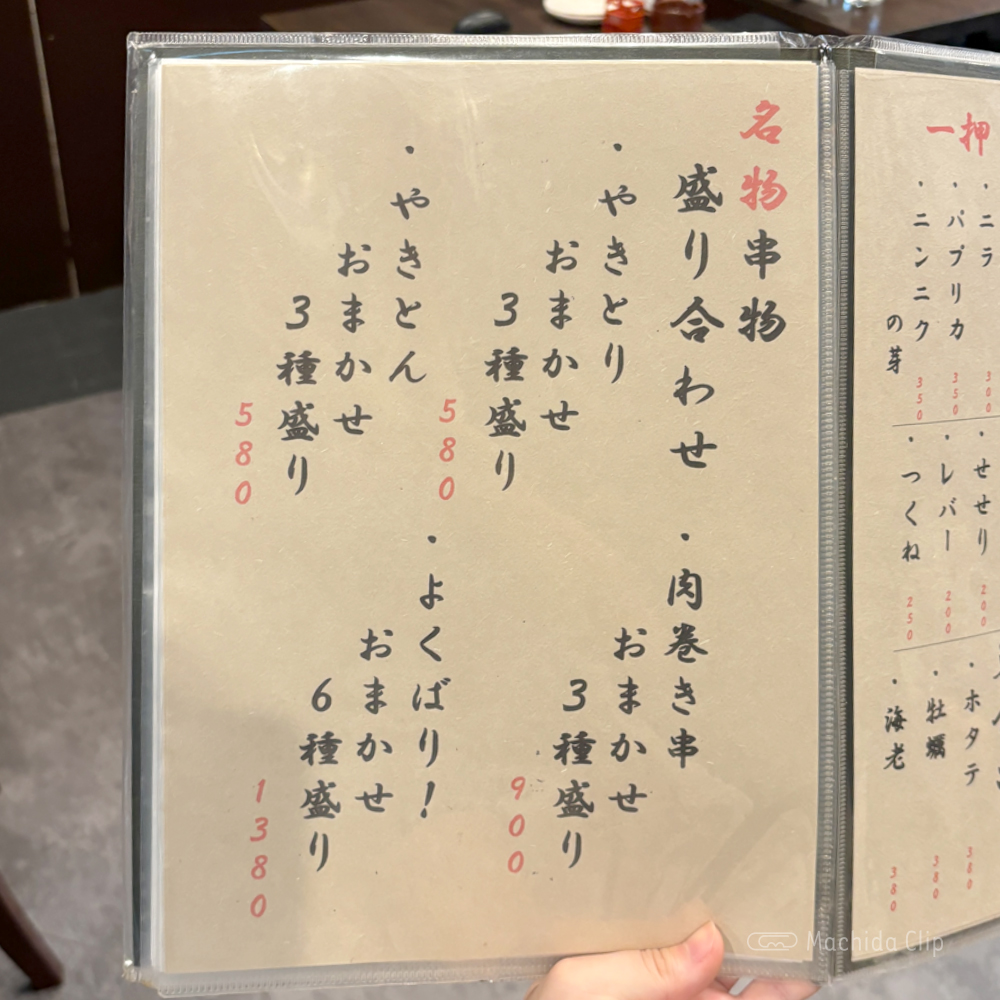 名物串物
盛り合わせ
・やきとり
おまかせ
3種盛り
580
・やきとん
おまかせ
3種盛り
580
・肉巻き串
おまかせ
3種盛り
900
・よくばり!
おまかせ
6種盛り
1380
一押
・ニラ
300
・パプリカ
350
・ニンニク
の芽
350
・せせり
200
・レバー
200
・つくね
250
・ホタテ
380
・牡蠣
380
・海老
380
Machida Clip